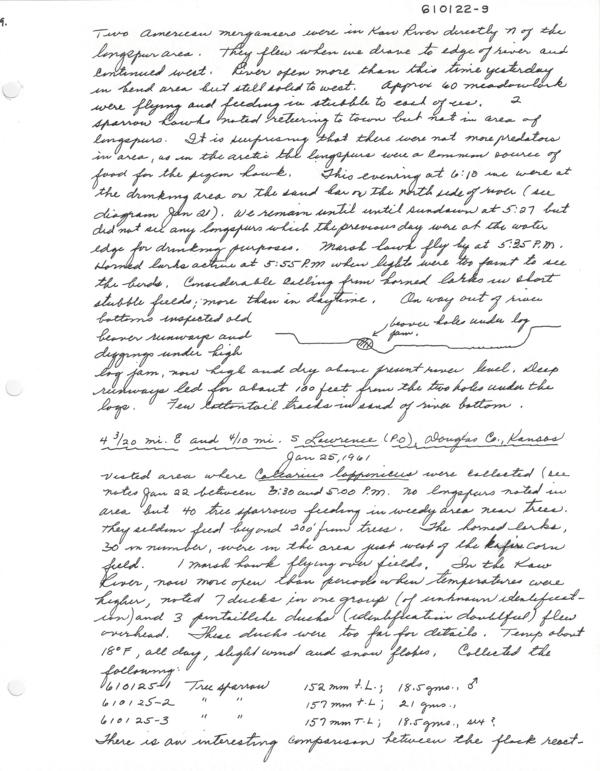 610122-9
9.
Two American mergansers were in Kaw River directly N of the
longspur area. They flew when we drove to edge of river and
continued west. River open more than this time yesterday
in bend area but still solid to west. Approx 60 meadowlark
were flying and feeding in stubble to east of us. 2
sparrow hawks noted returning to town but not in area of
longspurs. It is surprising that there were not more predators
in area, as in the arctic the longspurs were a common source of
food for the pigeon hawk. This evening at 6:10 we were at
the drinking area on the sand bar on the north side of river (see
diagram Jan 21). We remain until until sundown at 5:27 but
did not see any longspurs which the previous day were at the water
edge for drinking purposes. Marsh hawk fly by at 5:35 P.M.
Horned larks active at 5:55 P.M when lights were too faint to see
the birds. Considerable calling from horned larks in short
stubble fields; more than in daytime. On way out of river
bottoms inspected old
beaver runways and
diggings under high
beaver holes under log
jam.
log jam, now high and dry above present river level. Deep
runways led for about 100 feet from the two holes under the
logs. Few cottontail tracks in sand of river bottom.
4 3/20 mi. E and 4/10 mi. S Lawrence (P.O), Douglas Co., Kansas
Jan 25, 1961
Visted area where Calcarius lapponicus were collected (see
notes Jan 22 between 3:30 and 5:00 P.M. No longspurs noted in
area but 40 tree sparrows feeding in weedy area near trees.
They seldom feed beyond 200' from trees. The horned larks,
30 in number, were in the area just west of the kafir corn
field. 1 marsh hawk flying over fields. In the Kaw
River, now more open than periods when temperatures were
higher, noted 7 ducks in one group (of unknown identificat-
ion) and 3 pintaillike ducks (identification doubtful) flew
overhead. These ducks were too far for details. Temp about
18°F, all day, slight wind and snow flakes. Collected the
following:
610125-1 Tree sparrow 152 mm t.L.; 18.5 gms., ♂
610125-2 " " 157 mm T.L; 21 gms.,
610125-3 " " 157 mm T.L; 18.5 gms., sex?
There is an interesting comparison between the flock react-